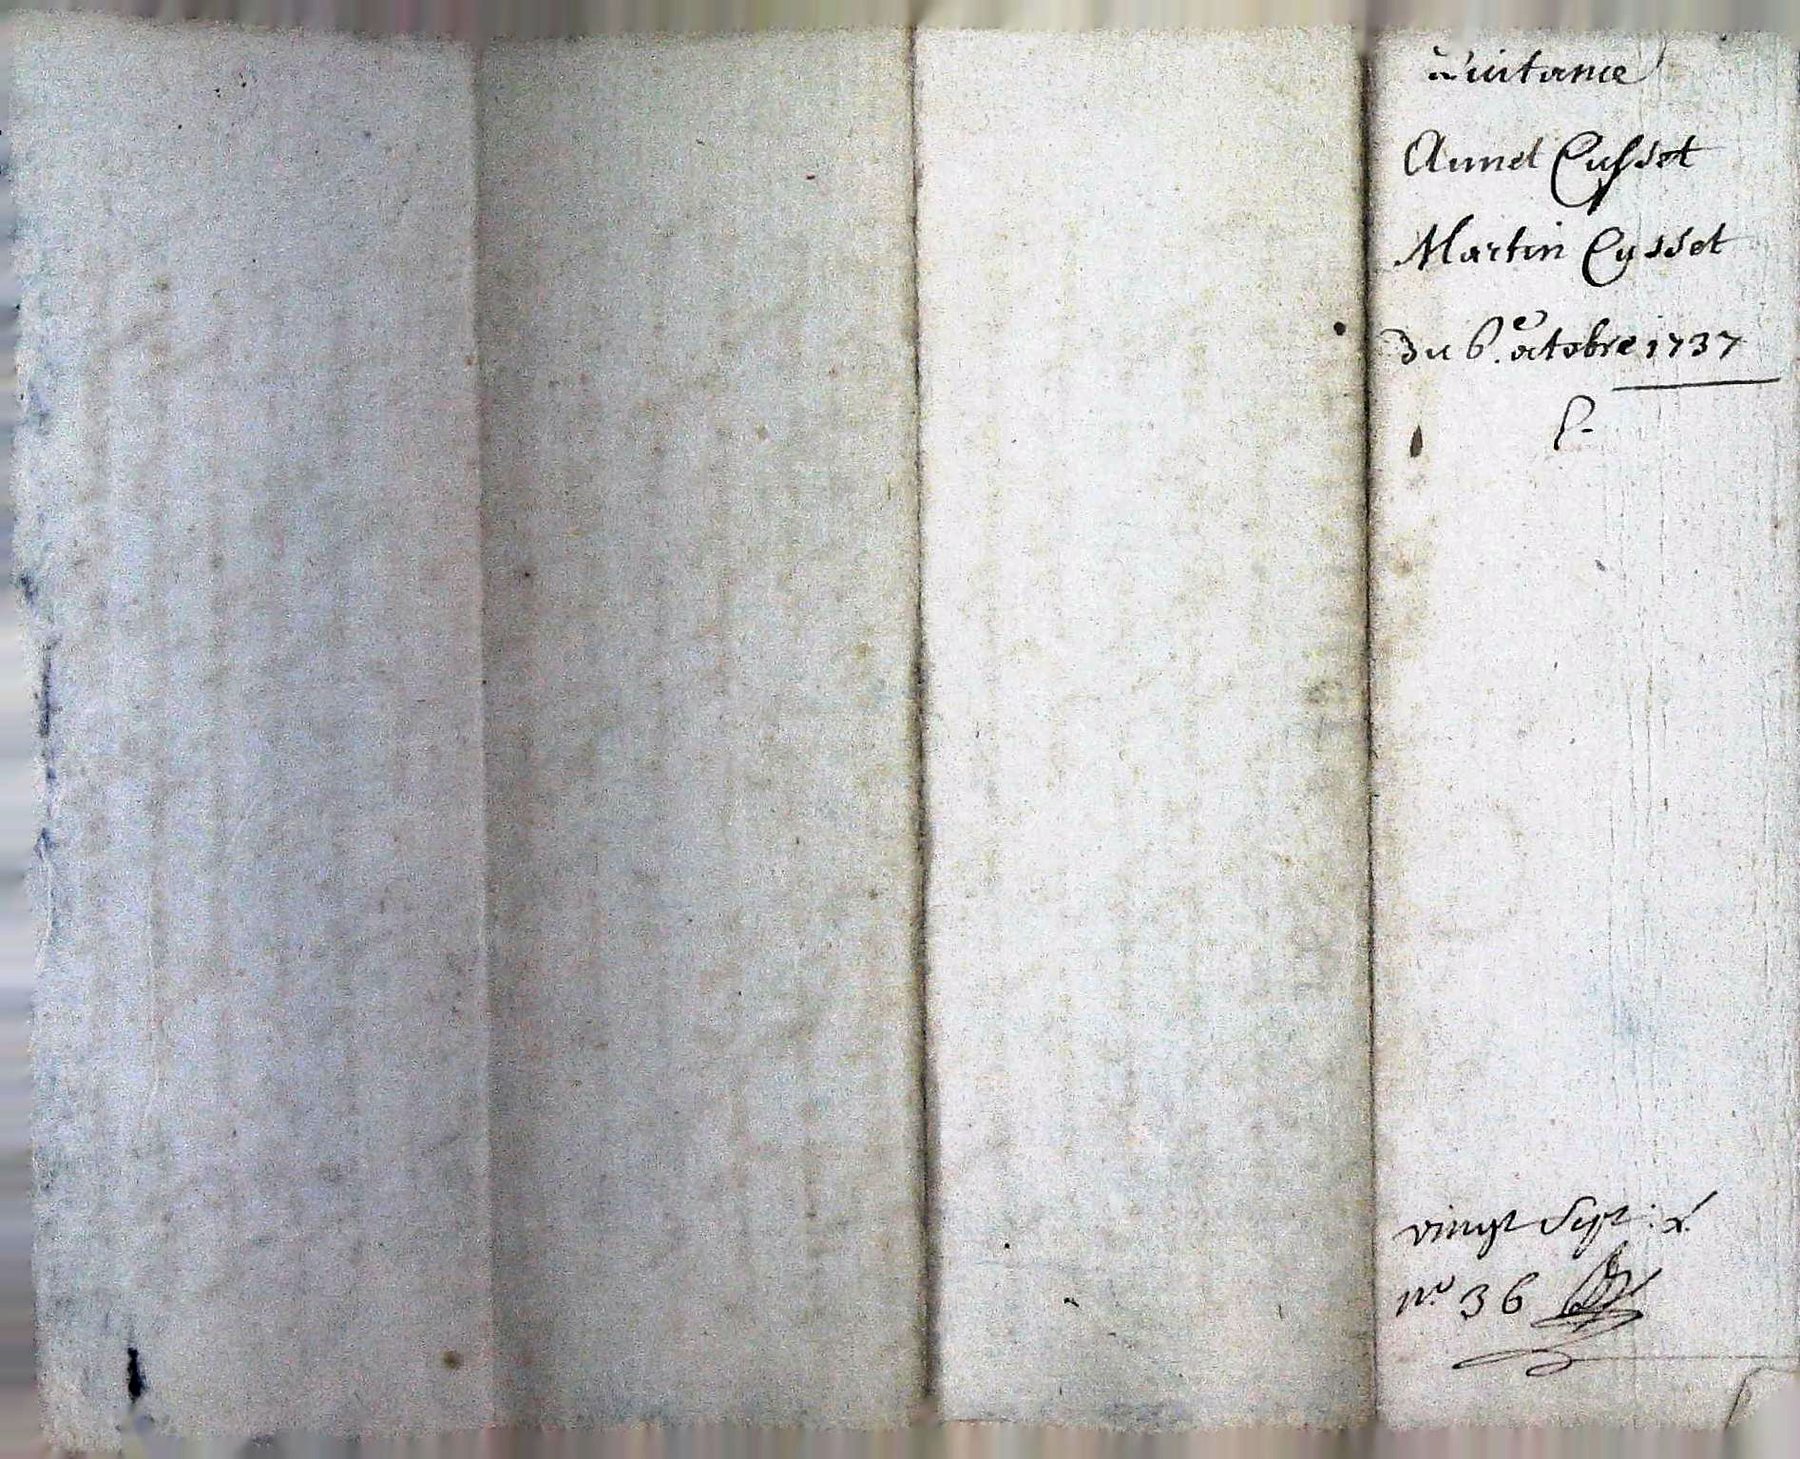 Quitance
Annet Cusset
Martin Cusset
du 6.e octobre 1737
P.
vingt Sept :
n.o 36